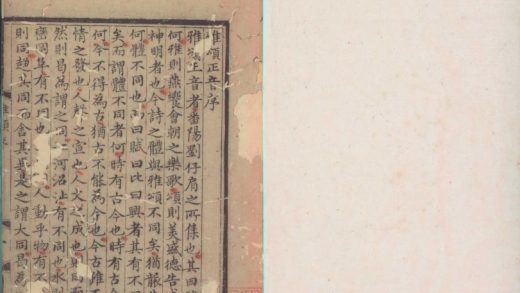 雅頌正音序
雅頌正音者番陽劉仔肩之所集也其曰
何雅則燕饗會朝之樂歌頌則美盛德告
神明者也今詩之體與雅頌不同矣猶襲
何體不同也而曰賦曰比曰興者其有不
矣而謂體不同者何時有古今也時有古
何今不得為古猶古不能為今也今古雖
情之發也人聲之宣也人文之成也
然則曷為謂之同江河沼沚有不同也水則
巒岡阜有不同也人動乎物有不
則同趨其同而舍其異是之謂大同曷為